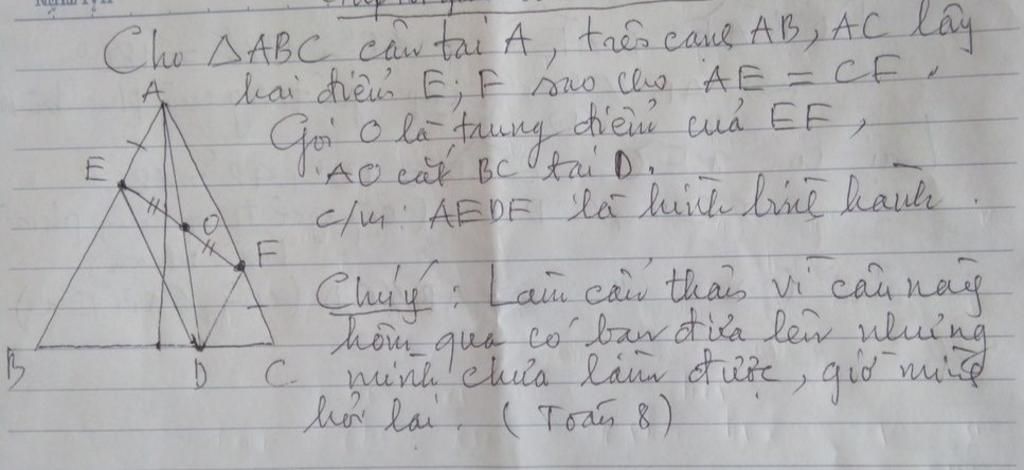 Cho △ABC cân tại A, trên cạnh AB, AC lấy
hai điểm E; F sao cho AE = CF.
Gọi O là trung điểm của EF,
AO cắt BC tại D.
c/m: AEDF là hình bình hành.
Chú ý: Làm cẩn thận vì câu này
hôm qua có bạn đưa lên nhưng
mình chưa làm được, giờ mình
hỏi lại. (Toán 8)
A
E
O
F
B
D
C